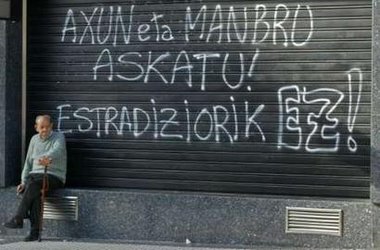 AXUN eta MANBRO
ASKATU!
ESTRADIZIORIK EZ!